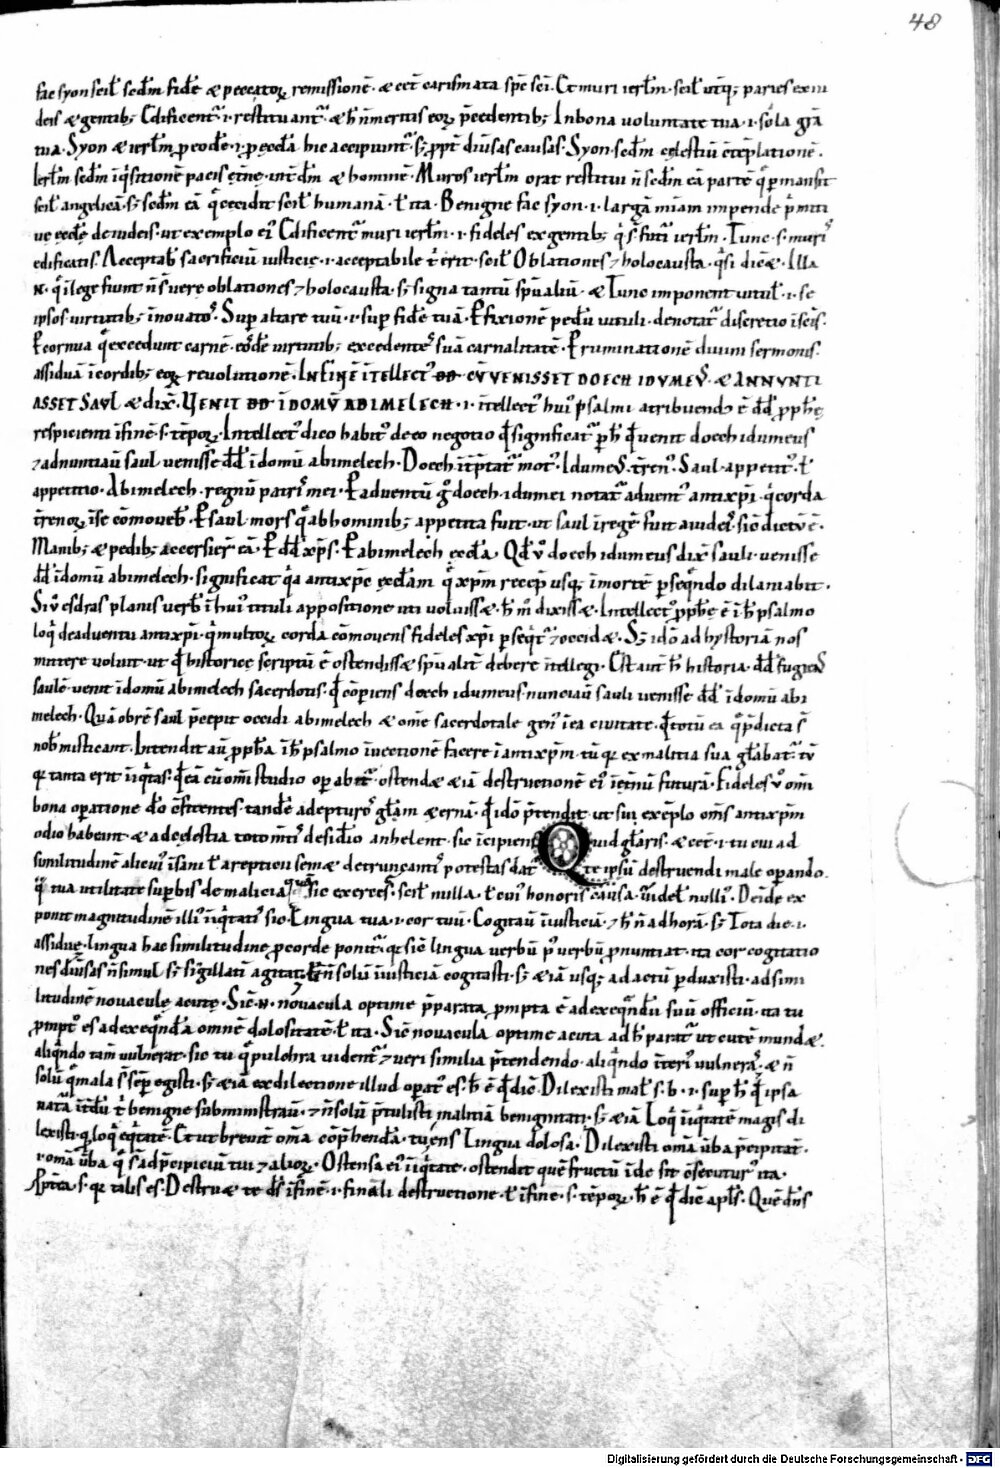 48
fac syon scił sedm̄ fidē & peccatoꝝ remissionē · & cet̄ carismata sp̄c sc̄i · Et muri ierłm · scił utiq; paries ex iu
deis & gentib; Edificent᷑ · i · restituant᷑ · & h̄ n̄ meritis eoꝝ p̄cedentib; In bona voluntate tua · i · sola gr̄a
tua · Syon & ierłm ꝓ eodē · i · ꝓ eccła hic accipiunt᷑ · sꝫ ꝓpt̄ diūsas causas · Syon · sedm̄ celestiū ētēplationē ·
Ierłm sedm̄ īq̇sitionē pacis et̄ne · int̄ dm̄ & hominē · Muros ierłm orat restitui n̄ sedm̄ eā partē q̄ ꝑmansit
scił angelicā · sꝫ sedm̄ eā q̄ cecidit scił humanā · ł ita · Benigne fac syon · i · largā mīam impende p̄miti
ue eccłe de iudeis · ut exemplo ei᷒ Edificent᷑ muri ierłm · i · fideles ex gentib; q̇ s̄ futi ierłm · Tunc · s · muris
edificatis · Acceptab̄ sacrificiū iusticie · i · acceptabile t̄ erit · scił Oblationes ⁊ holocausta · q̄si dic̄& · Illa
N · q̄ ī lege fiunt n̄ s̄ vere oblationes ⁊ holocausta · sꝫ signa tantū spūaliū · & Tunc imponent uituł · i · se
ipsos uirtutib; īnouatos · Sup̄ altare tuū · i · sup̄ fidē tuā · P̄ fixionē pedū uituli · denotat᷑ discretio ī sc̄is ·
P̄ cornua q̄ excedunt carnē · eosdē uirtutib; excedentes suā carnalitatē · P̄ ruminationē diuini sermonis ·
assiduā ī cordib; eoꝝ reuolutionē · IN FINĒ ĪTELLECT᷒ DD · CŪ VENISSET DOECH IDVME᷒ · & ANNVNTI
ASSET SAVŁ & dix̄ · VENIT DD Ī DOMŪ ABIMELECH · i · ītellect᷒ hui᷒ psalmi atribuend᷒ ē dd̄ ꝓph̄e
respicienti ī finē · s · tēpoꝝ · Intellect᷒ dico habit᷒ de eo negotio q̄d significat᷑ ꝑ h̄ q̄d uenit doech idumeus
⁊ adnuntiauit saul uenisse dd̄ ī domū abimelech · Doech īt̄ptat᷑ mot᷒ · Idume᷒ · t̄ren᷒ · Saul · appetit᷒ · ł
appetitio · Abimelech · regnū patris mei · P̄ aduentū g̊ doech · idumei notat᷑ aduent᷒ antixp̄i · q̇ corda
t̄renoꝝ ī se cōmoueb̄ · P̄ saul mors q̄ ab hominib; appetita fuit · ut saul ī regē fuit auide · sic dictū ē ·
Manib; & pedib; accersier̄ eā · P̄ dd̄ xp̄s · P̄ abimelech eccła · Qđ v᷒ doech idumeus dix̄ sauli · uenisse
dd̄ ī domū abimelech · significat q̇a antixp̄c eccłam q̄ xp̄m recep̄ usq; ī mortē ꝑseq̄ndo dilaniabit ·
Si v᷒ esdras planis uerb̄ ī hui᷒ tituli appositione uti uoluiss& · h̄ m̊ dixiss& · Intellect᷒ ꝓph̄e ē ī h̄ psalmo
loq̇ de aduentu antixp̄i · q̇ multoꝝ corda cōmouens fideles xp̄i ꝑseq̄t᷑ ⁊ occid& · Sꝫ idō ad hystoriā nos
mittere uoluit · ut q̄d historice scriptū ē ostendiss& spūalit̄ debere ītellegi · Est aut̄ h̄ historia · dd̄ fugiens
saulē · uenit ī domū abimelech sacerdotis · q̄d cōperiens doech idumeus · nunciauit sauli uenisse dd̄ ī domū abi
melech · Quā obrē saul p̄cepit occidi abimelech & om̄e sacerdotale gen᷒ ī ea ciuitate · q̄d totū ea q̄ p̄dicta s̄
nob̄ misticant · Intendit aū ꝓph̄a ī h̄ psalmo īuectionē facere ī antixp̄m · tū q̄ ex malitia sua głabat᷑ · tū
q̄ tanta erit īiq̇tas · q̄d eā cū om̄i studio oꝑabit᷑ · ostend& & iā destructionē ei᷒ ī et̄nū futurā · Fideles v᷒ om̄i
bona oꝑatione dō ēfitentes · tandē adepturos głam & ernā · q̄d idō p̄tendit · ut sui exēplo om̄s antixp̄m
odio habeant · & ad celestia toto mīti desidio anhelent · sic īcipiens Quid głaris · & cet̄ · i · tu cui ad
similitudinē alicui᷒ īsani ł arepticii semet detruncantis potestas dat᷑ te ipsū destruendi male oꝑando ·
q̄ tua utilitate suꝑbis de malicia · sic exerces · scił nulla · ł cui᷒ honoris causa · uidel nulli᷒ · Deinde ex
ponit magnitudinē illi᷒ īiq̇tatis sic · Lingua tua · i · cor tuū · Cogitauit īiusticiā · ⁊ h̄ n̄ ad horā · sꝫ Tota die · i ·
assidue · lingua hac similitudine ꝓ corde ponit᷑ · q̄ sic lingua uerbū p᷒ uerbū ꝓnuntiat · ita cor cogitatio
nes diūsas n̄ simul sꝫ sigillatī agitat · Et n̄ solū īiusticiā cogitasti · sꝫ & iā usq; ad actū ꝑduxisti · ad simi
litudinē nouacule acute · Sic · N · nouacula optime p̄parata ꝓmpta ē ad exeq̄ndū suū officiū · ita tu
ꝓmpt᷒ es ad exeq̄ndā omnē dolositatē · ł ita · Sic nouacula optime acuta ad h̄ parat᷑ ut cutē mund& ·
aliq̄ndo tam̄ uulnerat · sic tu q̄ pulchra uident᷑ ⁊ ueri similia p̄tendendo · aliq̄ndo īteri᷒ uulneras · & n̄
solū q̄ mala s̄ semp̄ egisti · sꝫ & iā ex dilectione illud oꝑat᷒ es · h̄ ē q̄d dic̄ · Dilexisti mał · s · b · i · sup̄ h̄ q̄ ipsa
natā īt̄dū t̄ benigne subministrauit · ⁊ n̄ solū p̄tulisti malitiā benignitati · sꝫ & iā Loq̇ īiq̇tatē magis di
lexisti · q̄ loq̇ eq̇tatē · Et ut breuit̄ om̄a cōp̄hendā · tu ens Lingua dolosa · Dilexisti om̄a ūba p̄cipitat ·
· om̄a ūba q̄ s̄ ad p̄cipiciū tui ⁊ alioꝝ · Ostensa ei᷒ īiq̇tate · ostendit quē fructū īde sit ēsecutur᷒ ita ·
Ppt̄ea · s · q̄ talis es · Destru& te ds̄ ī finē · i · finali destructione · ł ī fine · s · tēpoꝝ · h̄ ē q̄d dic̄ apłs · Quē dn̄s
Digitalisierung gefördert durch die Deutsche Forschungsgemeinschaft - DFG